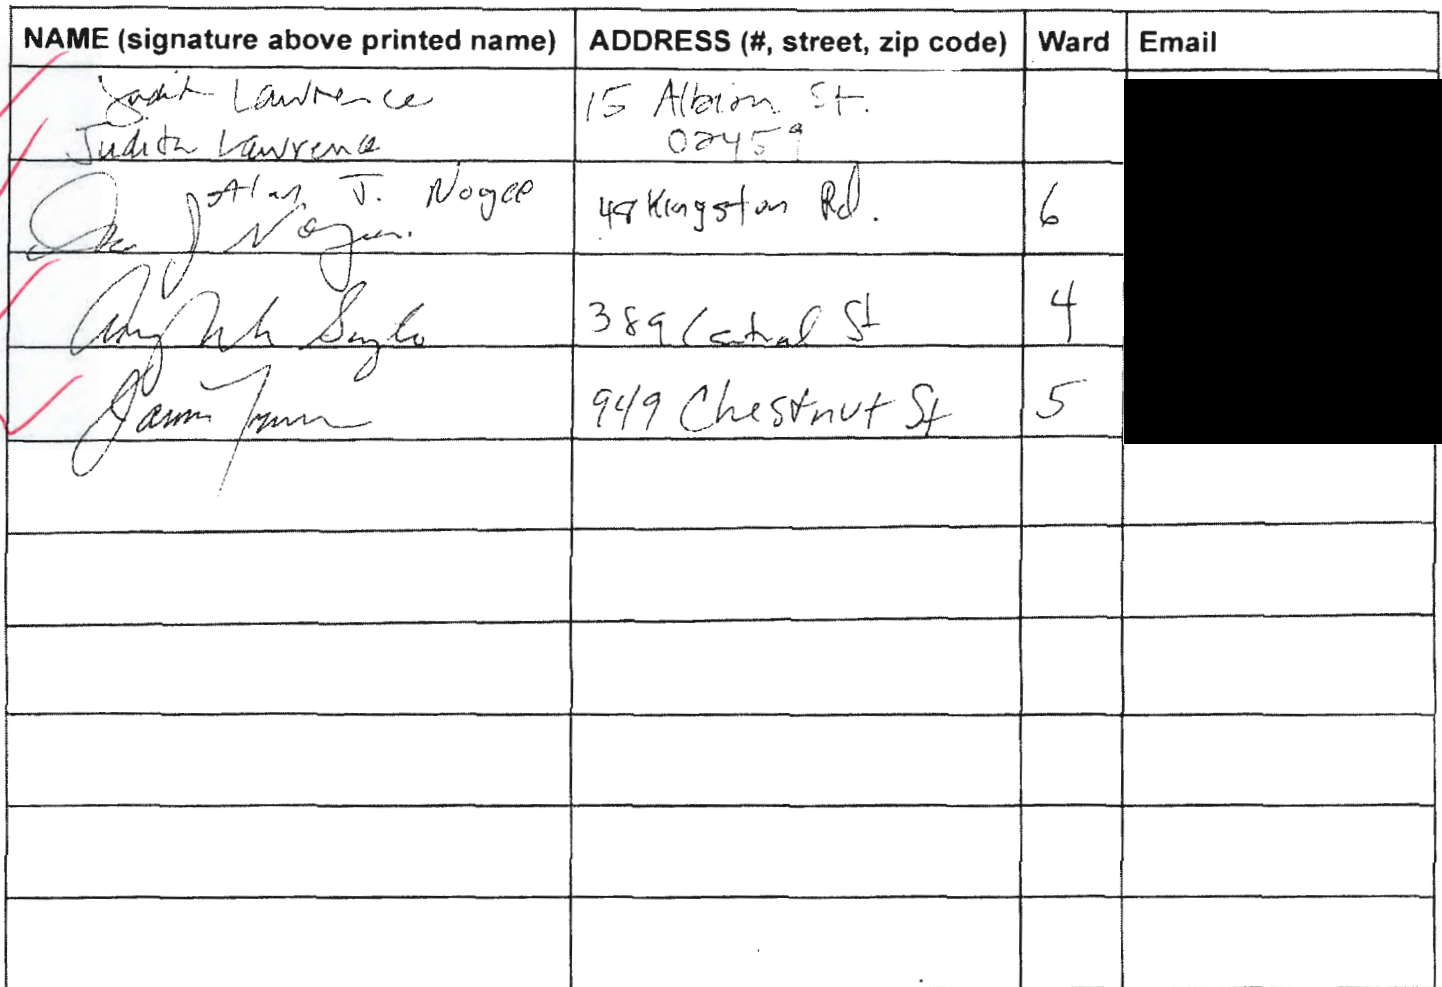 NAME (signature above printed name) ADDRESS (#, street, zip code) Ward Email
Judith Lawrence 15 Albion St.
Judith Lawrence 02459
Alan J. Nogee 48 Kingston Rd. 6
J Nogee
389 Central St 4
949 Chestnut St 5